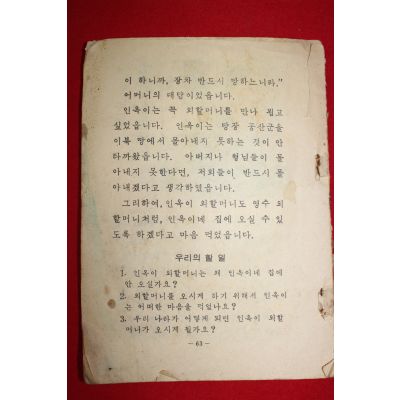 이 하니까, 장차 반드시 망하느니라."
어머니의 대답이었읍니다.
인옥이는 꼭 외할머니를 만나 뵙고
싶었읍니다. 인옥이는 당장 공산군을
이북 땅에서 몰아내지 못하는 것이 안
타까왔읍니다. 아버지나 형님들이 몰
아내지 못한다면, 저희들이 반드시 몰
아내겠다고 생각하였읍니다.
그리하여, 인옥이 외할머니도 영수 외
할머니처럼, 인옥이네 집에 오실 수 있
도록 하겠다고 마음 먹었읍니다.
우리의 할 일
1. 인옥이 외할머니는 왜 인옥이네 집에
안 오실가요?
2. 외할머니를 오시게 하기 위해서 인옥이
는 어떠한 마음을 먹었나요?
3. 우리 나라가 어떻게 되면 인옥이 외할
머니가 오시게 될가요?
— 63 —